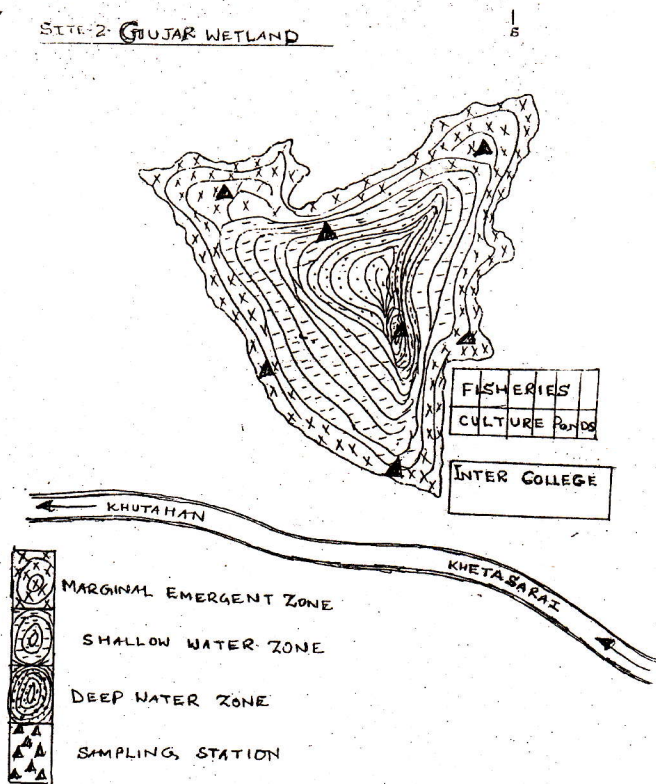 SITE-2- GUJAR WETLAND
S
FISHERIES
CULTURE PONDS
INTER COLLEGE
KHUTAHAN
KHETASARAI
MARGINAL EMERGENT ZONE
SHALLOW WATER ZONE
DEEP WATER ZONE
SAMPLING STATION